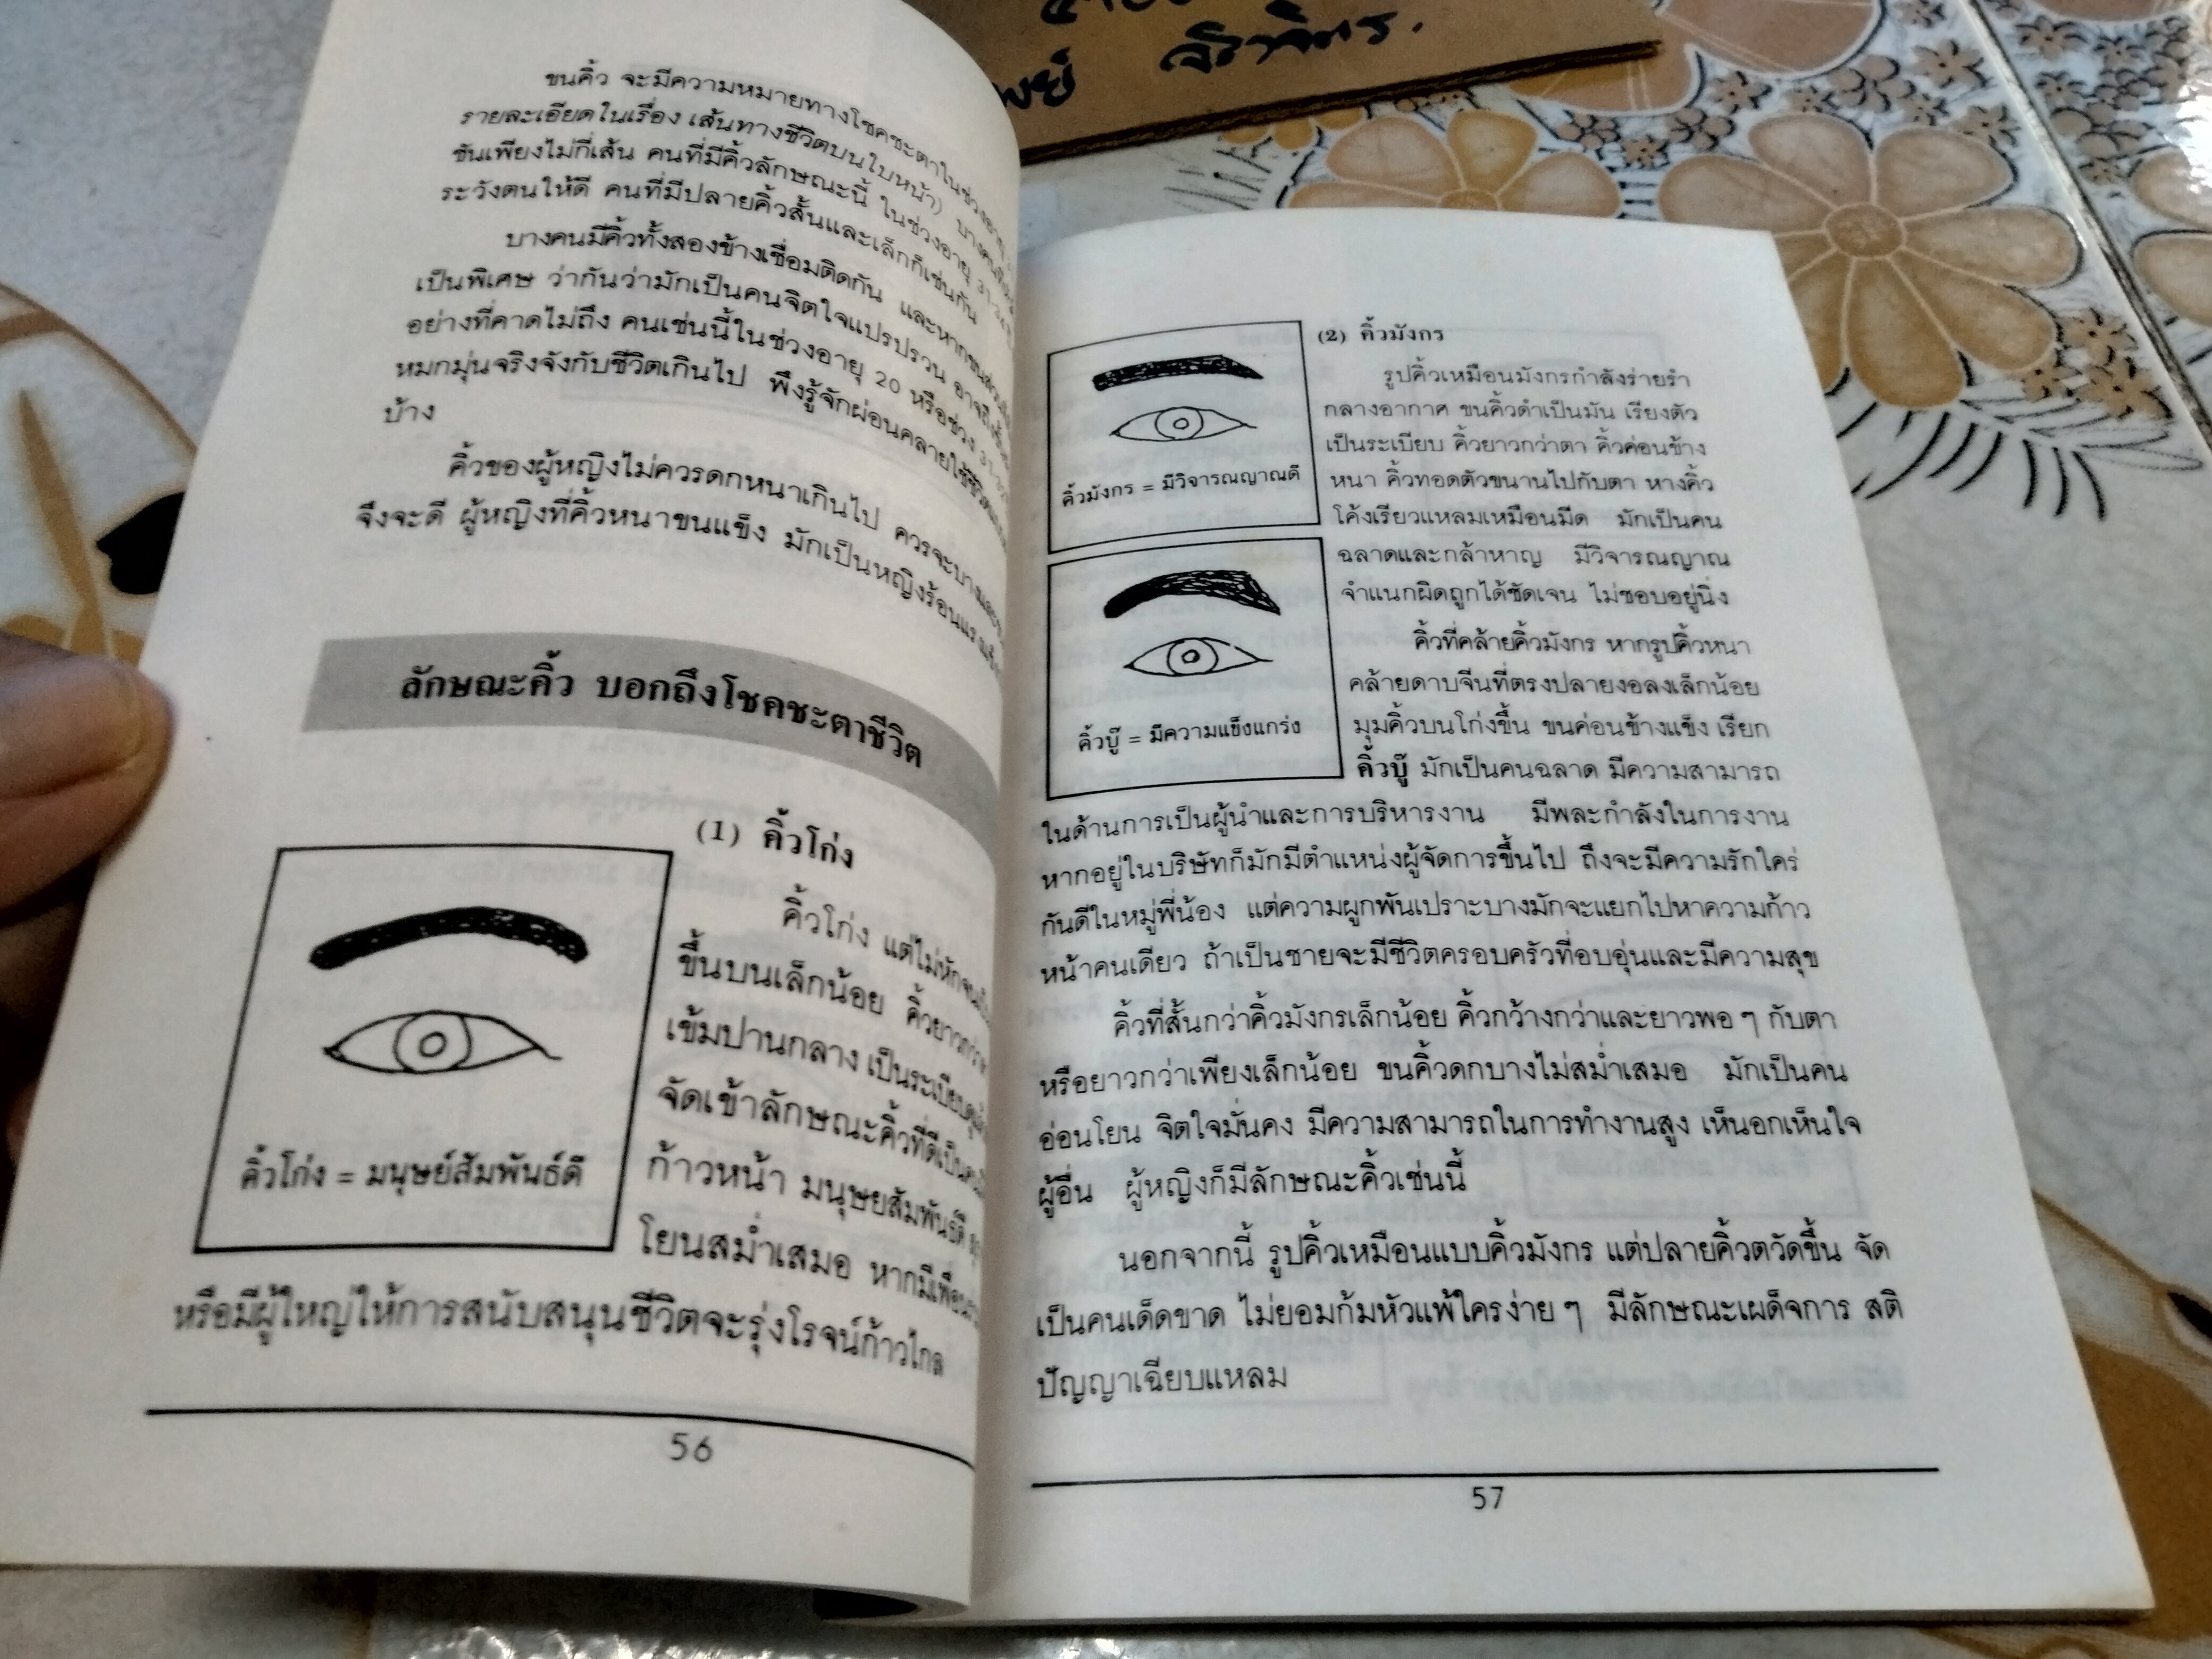 ขนคิ้ว จะมีความหมายทางโชคชะตาในช่วงอายุ
รายละเอียดในเรื่อง เส้นทางชีวิตบนใบหน้า) บางคนมี
ขันเพียงไม่กี่เส้น คนที่มีคิ้วลักษณะนี้ ในช่วงอายุ 31-34
ระวังตนให้ดี คนที่มีปลายคิ้วสั้นและเล็กก็เช่นกัน
บางคนมีคิ้วทั้งสองข้างเชื่อมติดกัน และหากขน
เป็นพิเศษ ว่ากันว่ามักเป็นคนจิตใจแปรปรวน อาจ
อย่างที่คาดไม่ถึง คนเช่นนี้ในช่วงอายุ 20 หรือช่วง
หมกมุ่นจริงจังกับชีวิตเกินไป พึงรู้จักผ่อนคลายใช้ชีวิต
บ้าง
คิ้วของผู้หญิงไม่ควรดกหนาเกินไป ควรจะบางและ
จึงจะดี ผู้หญิงที่คิ้วหนาขนแข็ง มักเป็นหญิงร้อนแรง
ลักษณะคิ้ว บอกถึงโชคชะตาชีวิต
(1) คิ้วโก่ง
คิ้วโก่ง แต่ไม่หักจน
ขึ้นบนเล็กน้อย คิ้วยาวกว่า
เข้มปานกลาง เป็นระเบียบ
จัดเข้าลักษณะคิ้วที่ดีเป็นคน
ก้าวหน้า มนุษยสัมพันธ์ดี
โยนสม่ำเสมอ หากมีเพื่อน
คิ้วโก่ง = มนุษย์สัมพันธ์ดี
หรือมีผู้ใหญ่ให้การสนับสนุนชีวิตจะรุ่งโรจน์ก้าวไกล
56
(2) คิ้วมังกร
รูปคิ้วเหมือนมังกรกำลังร่ายรำ
กลางอากาศ ขนคิ้วดำเป็นมัน เรียงตัว
เป็นระเบียบ คิ้วยาวกว่าตา คิ้วค่อนข้าง
หนา คิ้วทอดตัวขนานไปกับตา หางคิ้ว
โค้งเรียวแหลมเหมือนมีด มักเป็นคน
ฉลาดและกล้าหาญ มีวิจารณญาณ
จำแนกผิดถูกได้ชัดเจน ไม่ชอบอยู่นิ่ง
คิ้วมังกร = มีวิจารณญาณดี
คิ้วที่คล้ายคิ้วมังกร หากรูปคิ้วหนา
คล้ายดาบจีนที่ตรงปลายงอลงเล็กน้อย
มุมคิ้วบนโก่งขึ้น ขนค่อนข้างแข็ง เรียก
คิ้วบู๊ มักเป็นคนฉลาด มีความสามารถ
คิ้วบู๊ = มีความแข็งแกร่ง
ในด้านการเป็นผู้นำและการบริหารงาน มีพละกำลังในการงาน
หากอยู่ในบริษัทก็มักมีตำแหน่งผู้จัดการขึ้นไป ถึงจะมีความรักใคร่
กันดีในหมู่พี่น้อง แต่ความผูกพันเปราะบางมักจะแยกไปหาความก้าว
หน้าคนเดียว ถ้าเป็นชายจะมีชีวิตครอบครัวที่อบอุ่นและมีความสุข
คิ้วที่สั้นกว่าคิ้วมังกรเล็กน้อย คิ้วกว้างกว่าและยาวพอ ๆ กับตา
หรือยาวกว่าเพียงเล็กน้อย ขนคิ้วดกบางไม่สม่ำเสมอ มักเป็นคน
อ่อนโยน จิตใจมั่นคง มีความสามารถในการทำงานสูง เห็นอกเห็นใจ
ผู้อื่น ผู้หญิงก็มีลักษณะคิ้วเช่นนี้
นอกจากนี้ รูปคิ้วเหมือนแบบคิ้วมังกร แต่ปลายคิ้วตวัดขึ้น จัด
เป็นคนเด็ดขาด ไม่ยอมก้มหัวแพ้ใครง่าย ๆ มีลักษณะเผด็จการ สติ
ปัญญาเฉียบแหลม
57